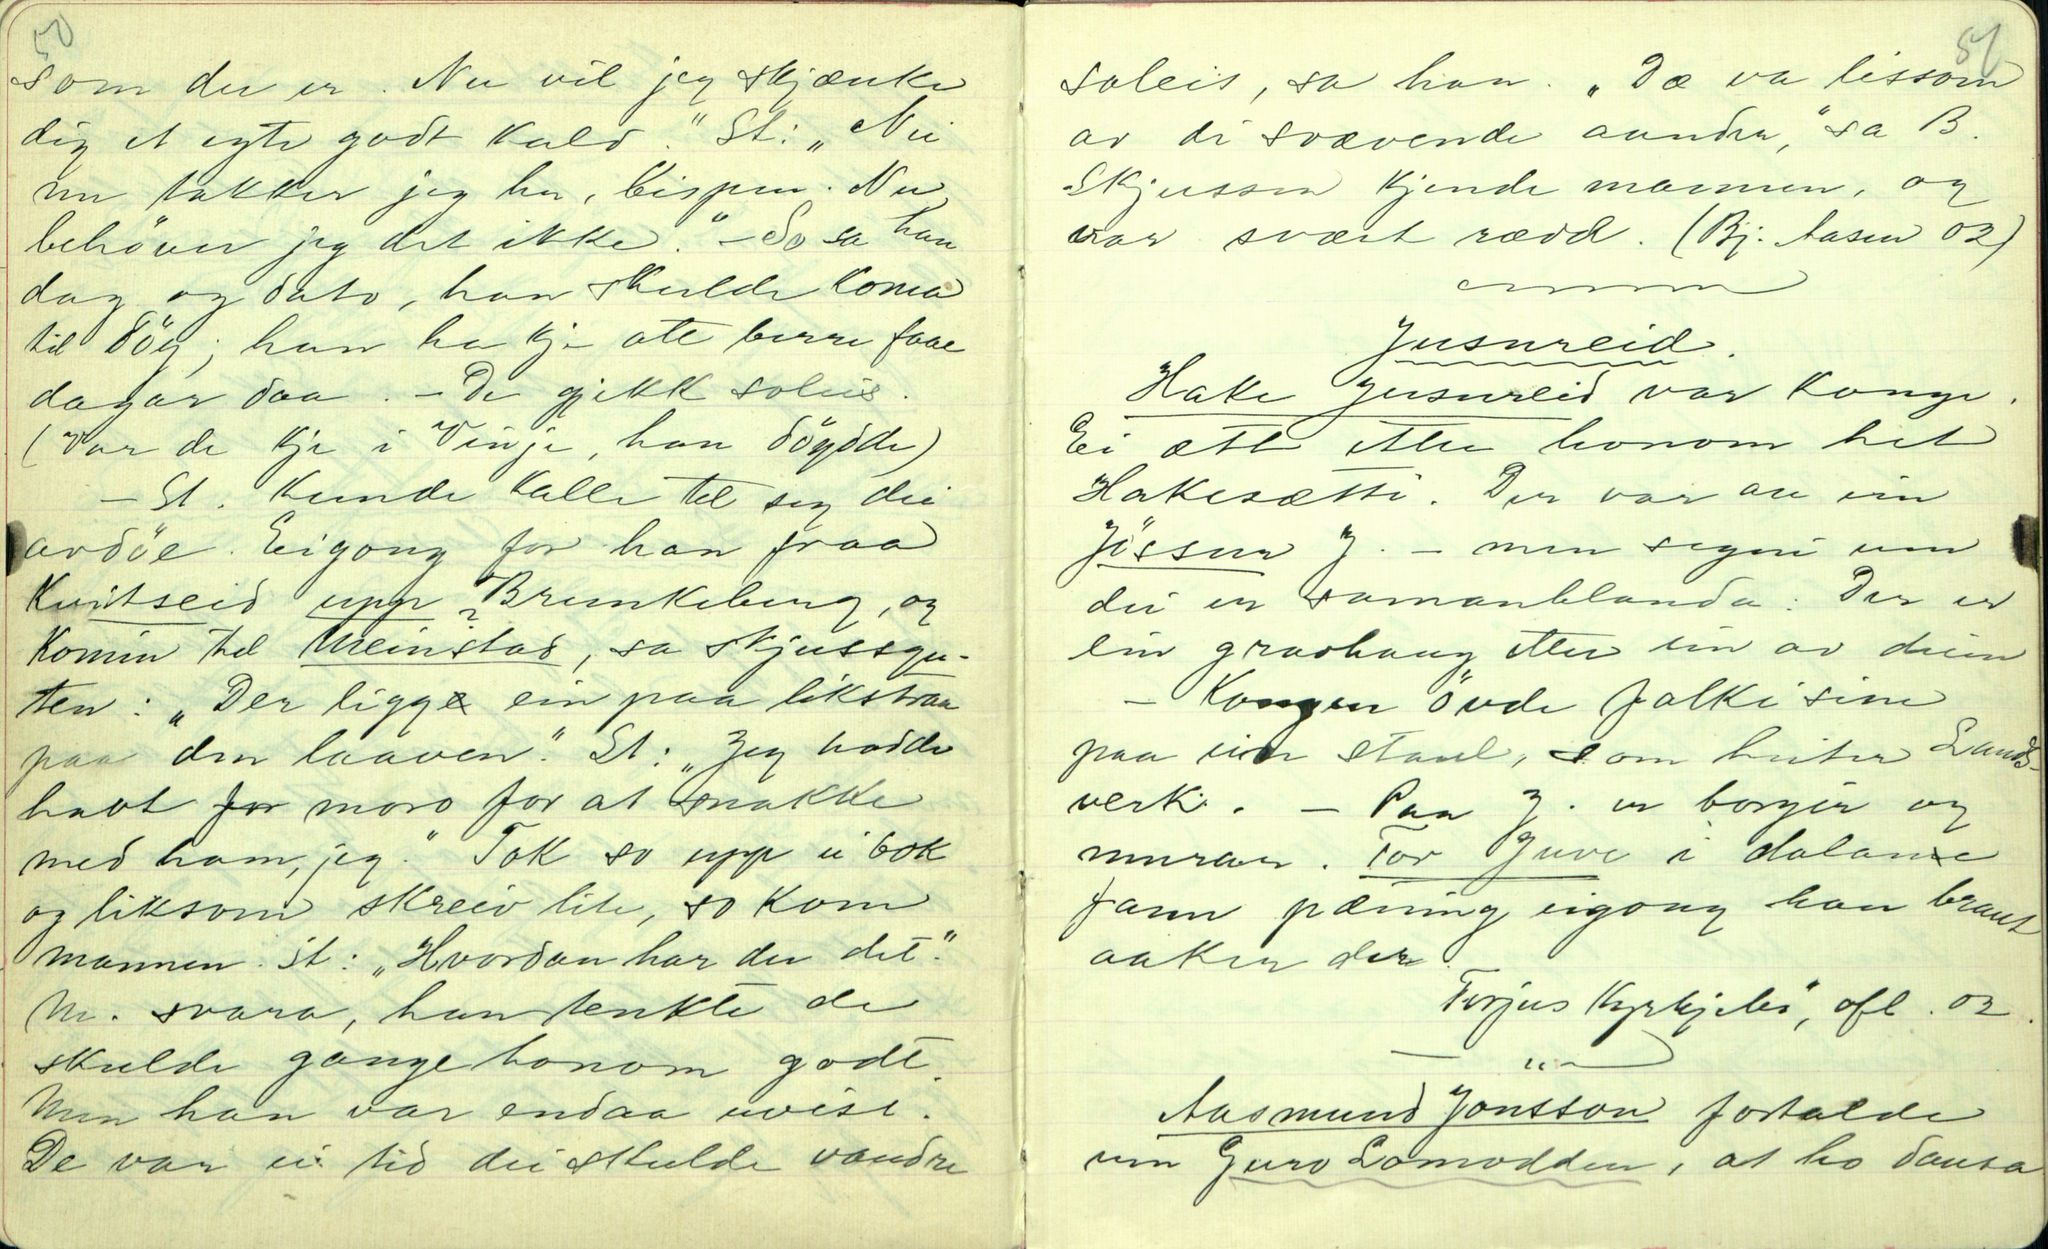 50
som du er. Nu vil jeg skjænke
dig et egte godt kald." St: „Nei
nu takker jeg hr. bispen. Nu
behöver jeg det ikke." – So sa han
dag og dato, han skulde koma
til döy; han ha kje att berre faae
dagar daa. – De gjekk soleis.
(Var de kje i Vinje, han döydde)
– St. kunde kalle til seg dei
avdöe. Eigong for han fraa
Kvitseid upp i Brunkeberg, og
komin til Meinstad, sa skjussgu-
ten: „Der ligge ein paa likstraa
paa den laaven." St: „Jeg hadde
havt for moro for at snakke
med ham, jeg." Tok so upp ei bok
og liksom skreiv lite, so kom
mannen. St: „Hvordan har du det".
M. svara, han tenkte de
skulde gange honom godt.
Men han var endaa uviss.
De var ei tid dei skulde vandre
51
soleis, sa han. „Dæ va lissom
av di svævende aander," sa B.
Skjussen kjende mannen, og
var svært rædd. (Bj. Aasen 02)
Jusureid.
Hake Jusureid var konge.
Ei ætt etter honom het
Hakesætti. Der var au ein
Jössur J. – men segni um
dei er samanblanda. Der er
ein gravhaug etter ein av deim
– Kongen övde folki sine
paa ein staul, som heiter Lands-
verk. – Paa J. er borgir og
murar. Tor Juve i dalane
fann pæning eigong han braut
aaker der.
Torjus Kyrkjebö, ofl. 02.
Aasmund Jonsson fortalde
um Guro Lomodden, at ho dansa